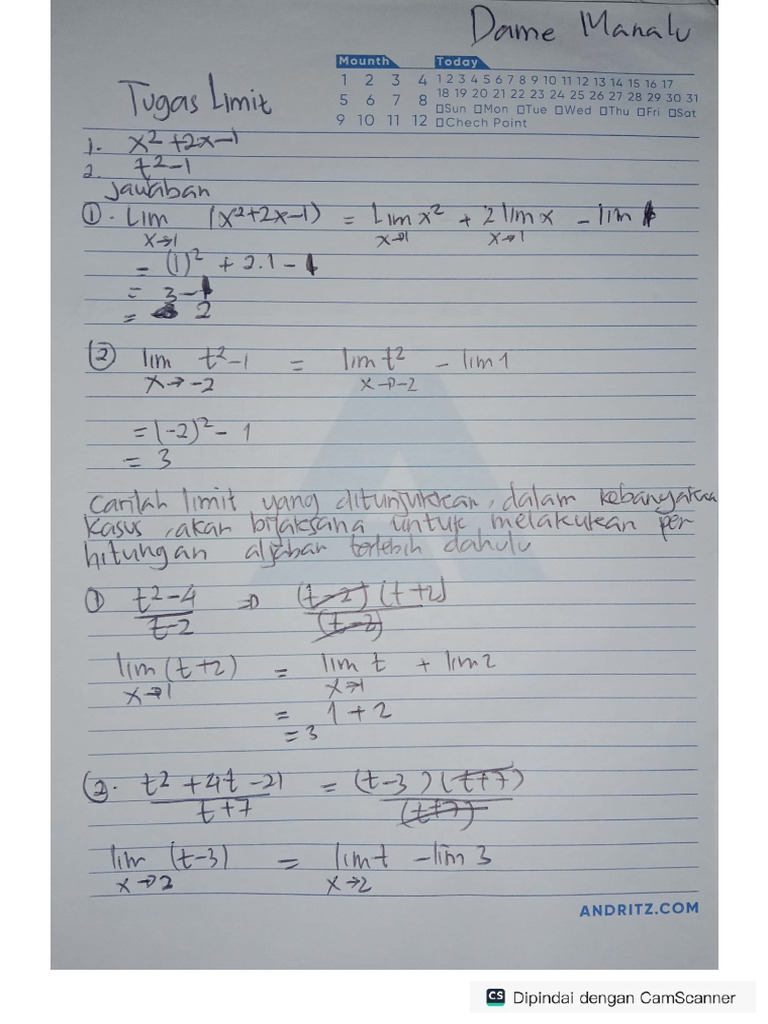 Dame Manalu
Mounth Today
1 2 3 4 1 2 3 4 5 6 7 8 9 10 11 12 13 14 15 16 17
5 6 7 8 18 19 20 21 22 23 24 25 26 27 28 29 30 31
9 10 11 12 □Sun □Mon □Tue □Wed □Thu □Fri □Sat
□Chech Point
Tugas Limit
1. x²+2x-1
2. t²-1
Jawaban
①. Lim (x²+2x-1) = Lim x² + 2 lim x - lim 1
x→1 x→1 x→1
= (1)² + 2.1 - 1
= 3-1
= 2
② lim t²-1 = lim t² - lim 1
x→-2 x→-2
= (-2)² - 1
= 3
Carilah limit yang ditunjukkan, dalam kebanyakan
kasus, akan bijaksana untuk melakukan per
hitungan aljabar terlebih dahulu
① t²-4 ⇒ (t-2)(t+2)
t-2 (t-2)
lim (t+2) = lim t + lim 2
x→1 x→1
= 1+2
= 3
②. t²+4t-21 = (t-3)(t+7)
t+7 (t+7)
lim (t-3) = lim t - lim 3
x→2 x→2
ANDRITZ.COM
CS Dipindai dengan CamScanner